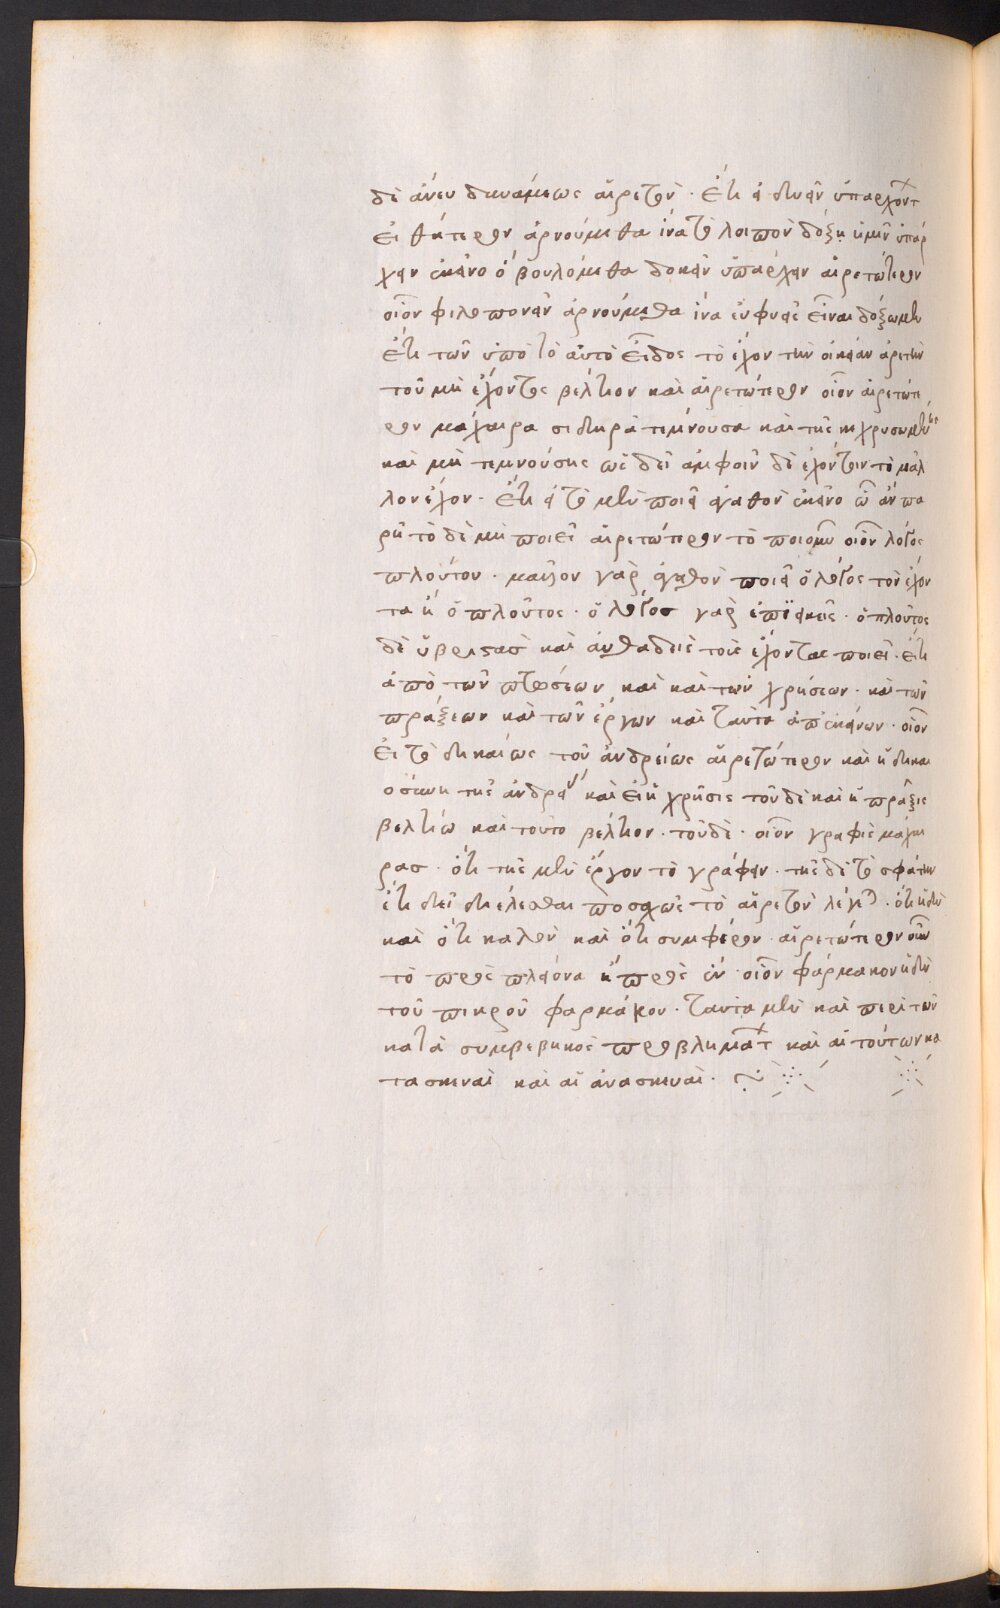 δὲ ἄνευ δυνάμεως αἱρετόν. Ἔτι ἐ δυεῖν ὑπαρχόντ
εἰ θάτερον ἀρνούμεθα ἵνα τὸ λοιπὸν δόξῃ ἡμῖν ὑπάρ
χειν ἐκεῖνο ὃ βουλόμεθα δοκεῖν ὑπάρχειν αἱρετώτερον
οἷον φιλοπονεῖν ἀρνούμεθα ἵνα εὐφυεῖς εἶναι δόξωμεν
Ἔτι τῶν ὑπὸ τὸ αὐτὸ εἶδος τὸ ἔχον τὴν οἰκείαν ἀρετὴν
τοῦ μὴ ἔχοντος βέλτιον καὶ αἱρετώτερον οἷον αἱρετώτε
ρον μάχαιρα σιδηρὰ τέμνουσα καὶ τῆς κεχρυσωμένης
καὶ μὴ τεμνούσης ὡς δεῖ ἀμφοῖν δὲ ἐχόντοιν τὸ μᾶλ
λον ἔχον. Ἔτι εἰ τὸ μὲν ποιεῖ ἀγαθὸν ἐκεῖνο ᾧ ἂν πα
ρῇ τὸ δὲ μὴ ποιεῖ αἱρετώτερον τὸ ποιοῦν οἷον λόγος
πλούτου. μᾶλλον γὰρ ἀγαθὸν ποιεῖ ὁ λόγος τὸν ἔχον
τα ἢ ὁ πλοῦτος. ὁ λόγος γὰρ ἐπϊεικεῖς. ὁ πλοῦτος
δὲ ὑβριστὰς καὶ αὐθάδεις τοὺς ἔχοντας ποιεῖ. ἔτι
ἀπὸ τῶν πτώσεων καὶ καὶ τῶν χρήσεων. καὶ τῶν
πράξεων καὶ τῶν ἔργων καὶ ταῦτα ἀπ' ἐκείνων. οἷον
Εἰ τὸ δικαίως τοῦ ἀνδρείως αἱρετώτερον καὶ ἡ δικαι
οσύνη τῆς ἀνδρείας καὶ εἰ ἡ χρῆσις τοῦδε καὶ ἡ πρᾶξις
βελτίω καὶ τοῦτο βέλτιον. τοῦδε. οἷον γραφὶς μαχαί
ρας. ὅτι τῆς μὲν ἔργον τὸ γράφειν. τῆς δὲ τὸ σφάττειν
ἔτι δεῖ διελέσθαι ποσαχῶς τὸ αἱρετὸν λέγεται. ὅτι ἡδὺ
καὶ ὅτι καλὸν καὶ ὅτι συμφέρον. αἱρετώτερον οὖν
τὸ πρὸς πλείονα ἢ πρὸς ἕν. οἷον φάρμακον ἡδὺ
τοῦ πικροῦ φαρμάκου. ταῦτα μὲν καὶ περὶ τῶν
κατὰ συμβεβηκὸς προβλημάτ καὶ αἱ τούτων κα
τασκευαὶ καὶ αἱ ἀνασκευαί.